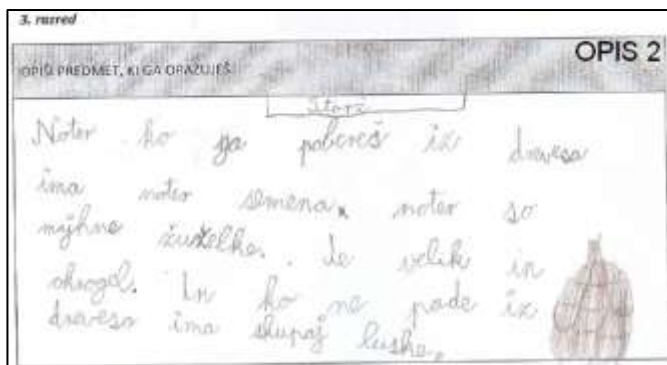 3. razred
OPIS 2
OPIŠI PREDMET, KI GA OPAZUJEŠ.
Storž
Noter ko ga pobereš iz drevesa
ima noter semena, noter so
majhne žuželke. Je velik in
okrogel. In ko ne pade iz
drevesa ima skupaj luske.